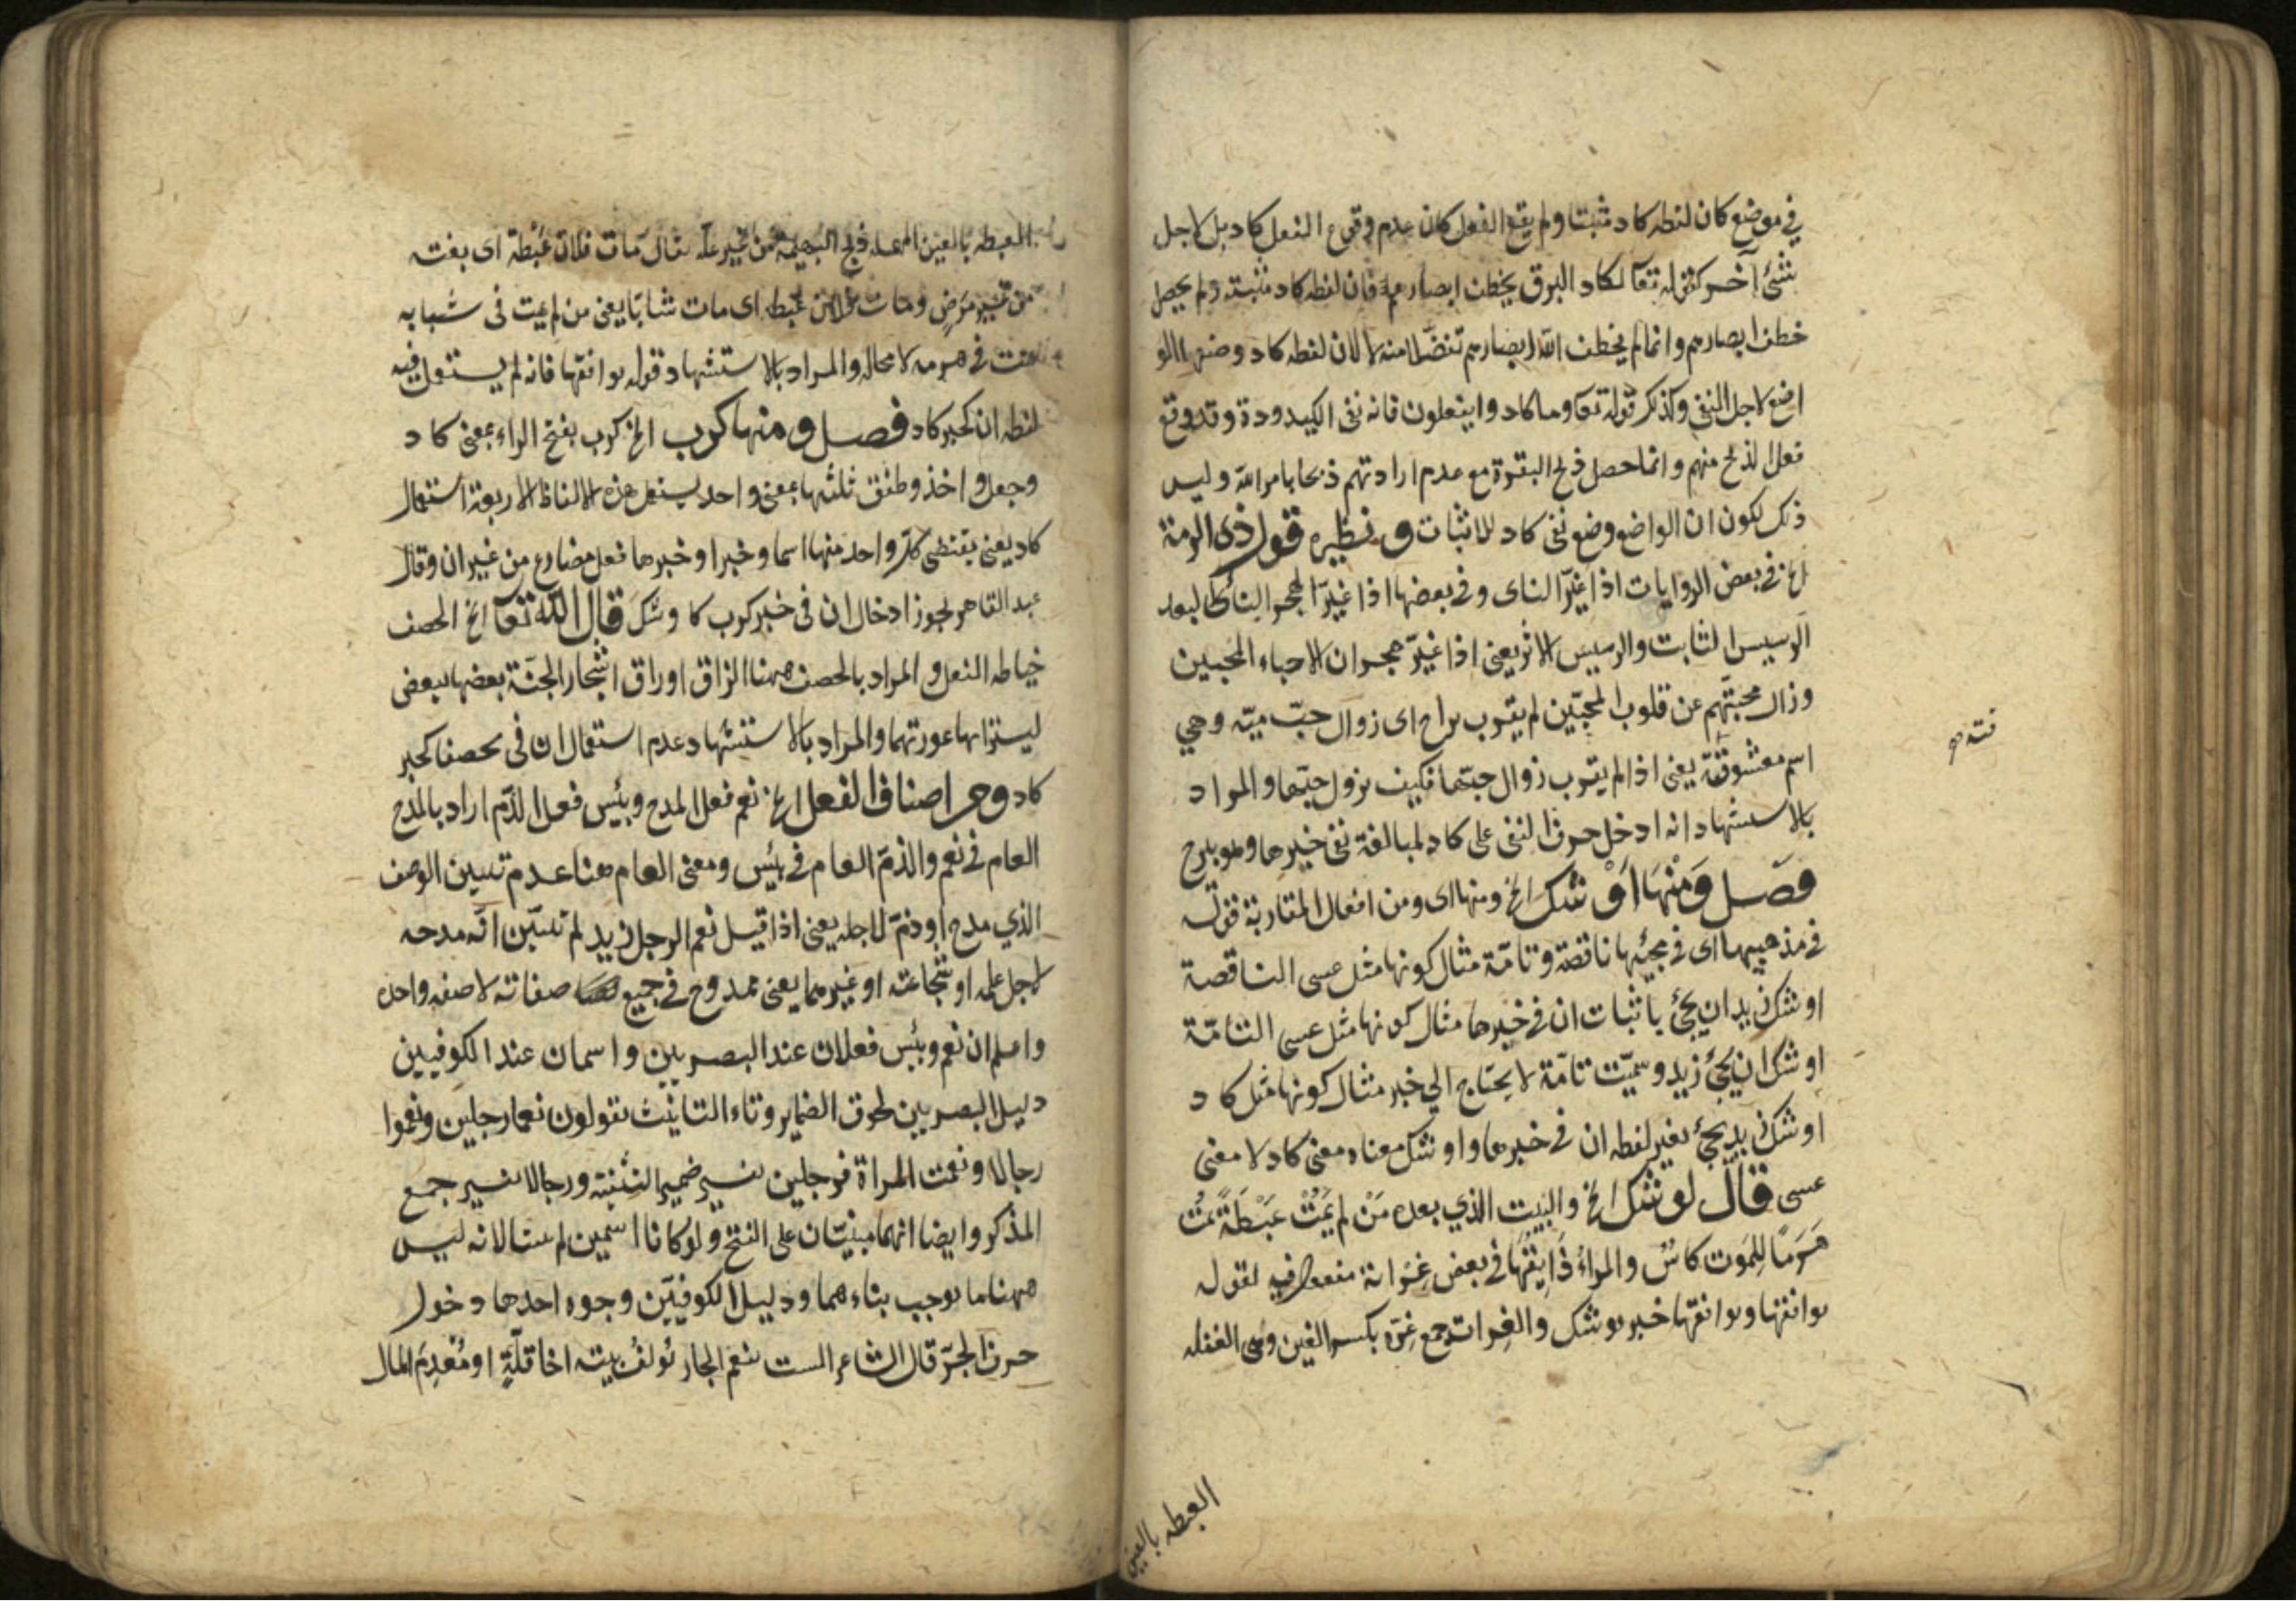 في موضع كان لفظه كاد مثبتا ولم يقع الفعل كان عدم وقوع الفعل كاد بل لاجل
شئ آخر كقوله تعآ يكاد البرق يخطف ابصارهم فان لفظه كاد مثبته ولم يحصل
خطف ابصارهم وانما لم يخطف الله ابصارهم تفضلا منه لا لان لفظه كاد وضعها الو
اضع لاجل النفى وكذلك قوله تعآ وما كادوا يفعلون فانه نفى الكيدودة وقد وقع
فعل الذبح منهم وانما حصل ذبح البقرة مع عدم ارادتهم ذبحا بامر الله وليس
ذلك لكون ان الواضع وضع نفى كاد للاثبات ونظيره قول ذى الرمة
الخ في بعض الروايات اذا غيّر الناى وفى بعضها اذا غيّر الهجر النائ البعد
الرسيس الثابت والرسيس الاثر يعنى اذا غيّر هجران الاحباء المحبين
وزال محبتهم عن قلوب المحبّين لم يقرب براح اى زوال حبّ ميّه وهي
اسم معشوقته يعنى اذا لم يقرب زوال حبّها فكيف يزول حبّها والمراد
بالاستشهاد انه ادخل حرف النفى على كاد لمبالغة نفى خبرها وهو يبرح
فصل ومنها اوشك الخ ومنها اى ومن افعال المقاربة قوله
في مذهبيها اى في مجيئها ناقصة وتامّة مثال كونها مثل عسى الناقصة
اوشك زيد ان يجئ باثبات ان في خبرها مثال كونها مثل عسى التامّة
اوشك ان يجئ زيد وسمّيت تامّة لا يحتاج الي خبر مثال كونها مثل كاد
اوشك زيد يجئ بغير لفظه ان في خبرها واوشك معناه معنى كاد لا معنى
عسى قال يوشك الخ والبيت الذي بعده مَنْ لم يَمُتْ عَبْطَةً يمُت
هَرَمًا للموت كاسٌ والمراُ ذَايِقُهَا في بعض غراته مفعول فيه لقوله
يوافقها ويوافقها خبر يوشك والغِرات جمع غِرّه بكسر الغين وهى الغفله
العبطه بالعين
العبطه بالعين المهمله ذبح البهيمة من غير علّه يقال مات فلان عَبْطَة اى بغته
من غير مرض ومات فلان عبطه اى مات شابّا يعنى من لم يمت فى شبابه
يمت في هرمه لا محاله والمراد بالاستشهاد قوله يوافقها فانه لم يستعمل فيه
لفظه ان كخبر كاد فصل ومنها كرب الخ كرب بفتح الراء بمعنى كاد
وجعل واخذ وطفق ثلثتها بمعنى واحد يستعمل هذه الالفاظ الاربعة استعمال
كاد يعنى يقتضى كل واحد منها اسما وخبرا وخبرها فعل مضارع من غير ان وقال
عبد القاهر يجوز ادخال ان فى خبر كرب كاوشك قال الله تعآ الخ الخصف
خياطه النعل والمراد بالخصف ههنا الزاق اوراق اشجار الجنّة بعضها ببعض
ليستر بها عورتهما والمراد بالاستشهاد عدم استعمال ان فى يخصفا كخبر
كاد ومن اصناف الفعل الخ نعم فعل المدح وبئس فعل الذّم اراد بالمدح
العام في نعم والذمّ العام في بئس ومعنى العام هنا عدم تبيين الوصف
الذي مدح او ذمّ لاجله يعنى اذا قيل نعم الرجل زيد لم تبيّن انّه مدحه
لاجل علمه او شجاعته او غيرهما يعنى ممدوح في جميع صفاته لا صفه واحده
واعلم ان نعم وبئس فعلان عند البصريين واسمان عند الكوفيين
دليل البصريين لحوق الضماير وتاء التانيث تقولون نعما رجلين ونعموا
رجالا ونعمت المراة فرجلين تفسير ضمير التثنيه ورجالا تفسير جمع
المذكر وايضا انهما مبنيّان على الفتح ولو كانا اسمين لم يبنيا لانه ليس
ههنا ما يوجب بناءهما ودليل الكوفيّين وجوه احدها دخول
حرف الجرّ قال الشاعر الست بنعم الجار يُولف بيته اخا قلّةٍ او مُعْدِمَ المال